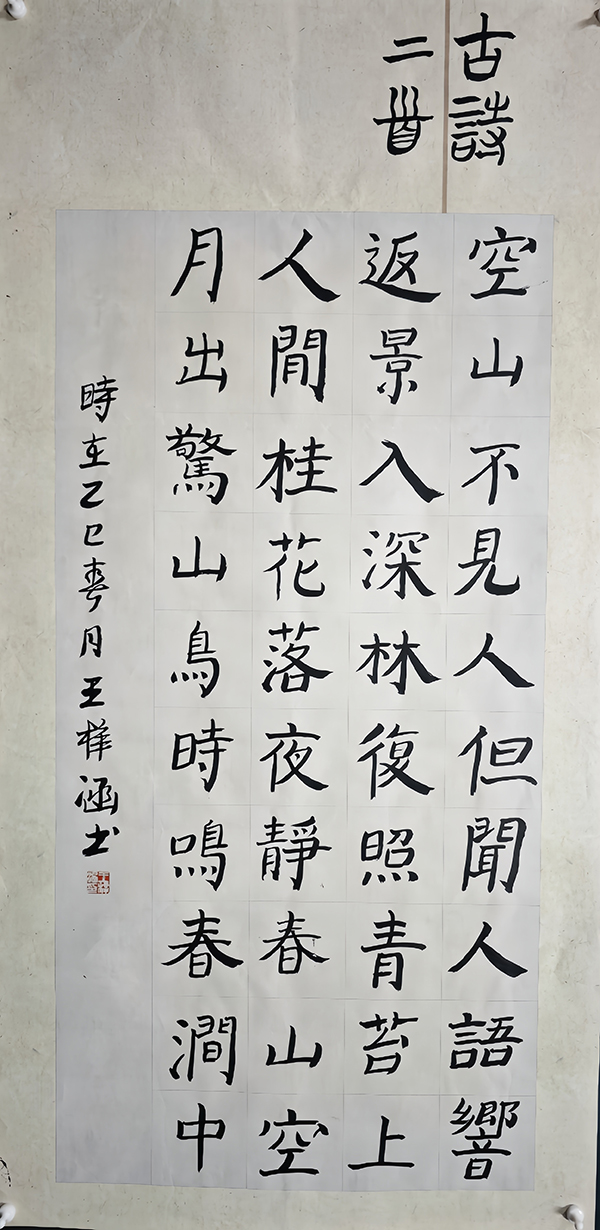 古詩
二首
空山不見人但聞人語響
返景入深林復照青苔上
人閒桂花落夜靜春山空
月出驚山鳥時鳴春澗中
時在乙巳春月王樺涵书